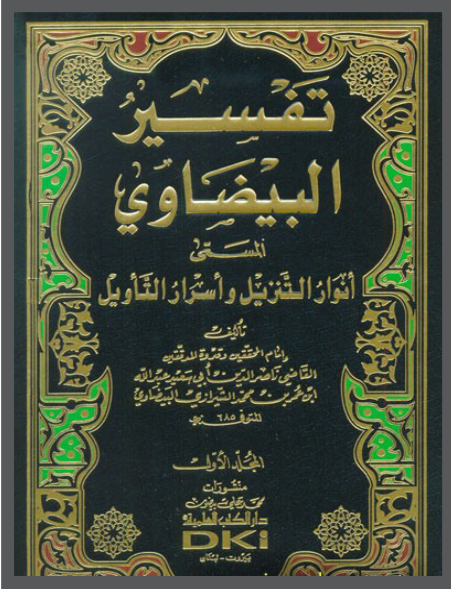 تفسير
البيضاوي
المسمى
أنوار التنزيل وأسرار التأويل
تأليف
إمام المحققين وقدوة المدققين
القاضي ناصر الدين أبي سعيد عبد الله
ابن عمر بن محمد الشيرازي البيضاوي
المتوفى ٦٨٥ هـ
المجلد الأول
منشورات
محمد علي بيضون
دار الكتب العلمية
DKi
بيروت - لبنان